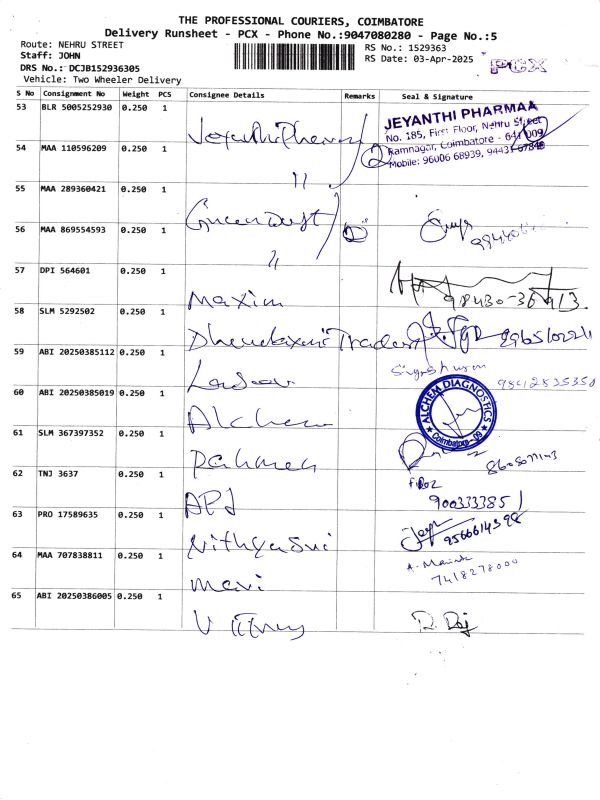 THE PROFESSIONAL COURIERS, COIMBATORE
Delivery Runsheet - PCX - Phone No.:9047080280 - Page No.:5
Route: NEHRU STREET
RS No.: 1529363
Staff: JOHN
RS Date: 03-Apr-2025
PCX
DRS No.: DCJB152936305
Vehicle: Two Wheeler Delivery
S No Consignment No Weight PCS Consignee Details Remarks Seal & Signature
53 BLR 5005252930 0.250 1
JEYANTHI PHARMAA
No. 185, First Floor, Nehru Street
Ramnagar, Coimbatore - 641 009
Mobile: 96006 68939, 94431 67848
54 MAA 110596209 0.250 1 "
55 MAA 289360421 0.250 1
56 MAA 869554593 0.250 1 "
57 DPI 564601 0.250 1 Maxim
58 SLM 5292502 0.250 1 Traders
59 ABI 20250385112 0.250 1
60 ABI 20250385019 0.250 1 Alchem
ALCHEM DIAGNOSTICS
Coimbatore - 09
61 SLM 367397352 0.250 1 Rahmen
62 TNJ 3637 0.250 1 APJ
9003333851
63 PRO 17589635 0.250 1 Nithyasri
9566614398
64 MAA 707838811 0.250 1 Mavi
7418278000
65 ABI 20250386005 0.250 1
R. Raj